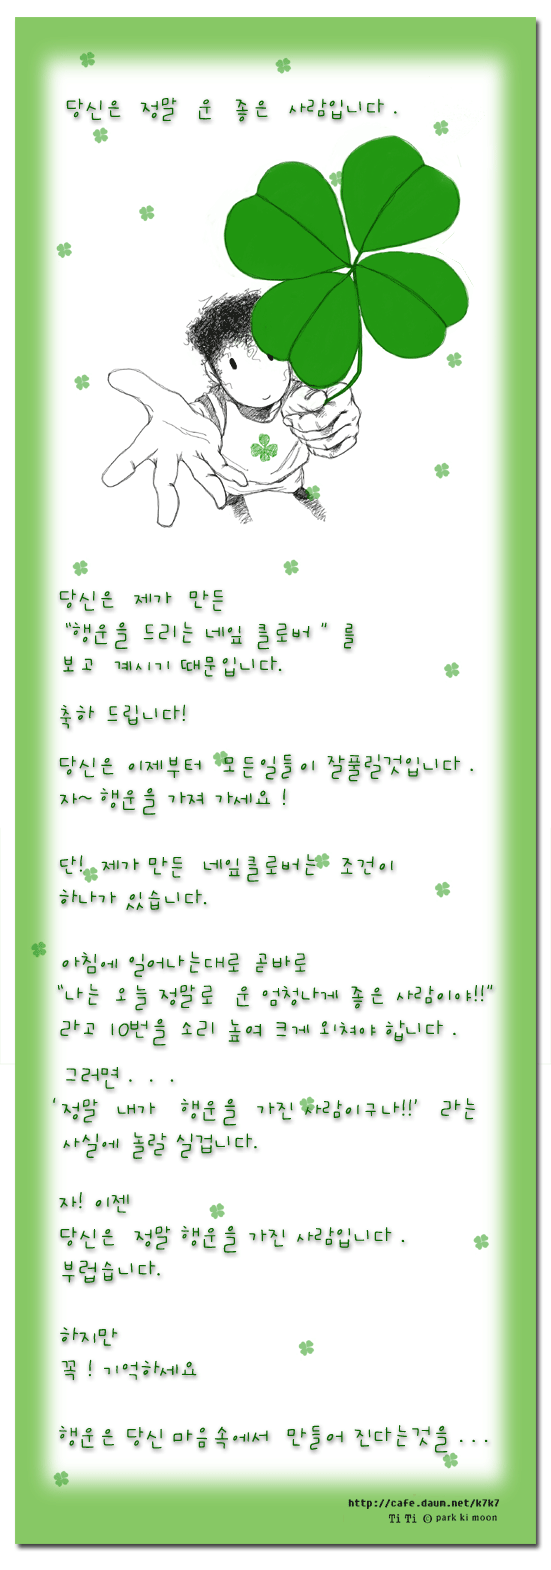 당신은 정말 운 좋은 사람입니다.
당신은 제가 만든
"행운을 드리는 네잎 클로버" 를
보고 계시기 때문입니다.
축하 드립니다!
당신은 이제부터 모든일들이 잘풀릴것입니다.
자~ 행운을 가져 가세요!
단! 제가 만든 네잎클로버는 조건이
하나가 있습니다.
아침에 일어나는대로 곧바로
"나는 오늘 정말로 운 엄청나게 좋은 사람이야!!"
라고 10번을 소리 높여 크게 외쳐야 합니다.
그러면. . .
'정말 내가 행운을 가진 사람이구나!!' 라는
사실에 놀랄 실겁니다.
자! 이젠
당신은 정말 행운을 가진 사람입니다.
부럽습니다.
하지만
꼭! 기억하세요
행운은 당신 마음속에서 만들어 진다는것을...
http://cafe.daum.net/k7k7
Ti Ti © park ki moon